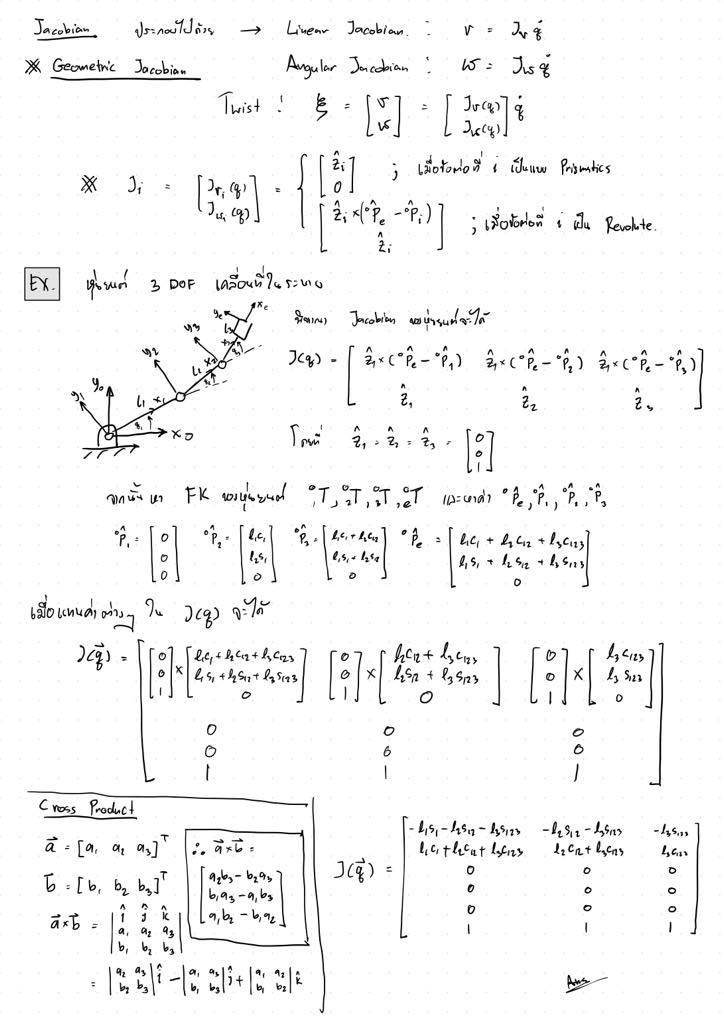 Jacobian ประกอบไปด้วย → Linear Jacobian : v = Jv q̇
※ Geometric Jacobian Angular Jacobian : ω = Jω q̇
Twist : ξ = [v ω] = [Jv(q) Jω(q)] q̇
※ Ji = [Jvi(q) Jωi(q)] = { [ẑi 0] ; เมื่อข้อต่อที่ i เป็นแบบ Prismatics
[ẑi×(⁰P̂e - ⁰P̂i) ẑi] ; เมื่อข้อต่อที่ i เป็น Revolute.
EX. หุ่นยนต์ 3 DOF เคลื่อนที่ในระนาบ
y0 x0 y1 x1 y2 x2 y3 x3 ye xe L1 L2 L3 q1 q2 q3
พิจารณา Jacobian ของหุ่นยนต์จะได้
J(q) = [ẑ1×(⁰P̂e - ⁰P̂1) ẑ1×(⁰P̂e - ⁰P̂2) ẑ1×(⁰P̂e - ⁰P̂3)
ẑ1 ẑ2 ẑ3]
โดยที่ ẑ1 = ẑ2 = ẑ3 = [0 0 1]
จากนั้นหา FK ของหุ่นยนต์ ⁰₁T, ⁰₂T, ⁰₃T, ⁰ₑT และหาค่า ⁰P̂e, ⁰P̂1, ⁰P̂2, ⁰P̂3
⁰P̂1 = [0 0 0] ⁰P̂2 = [l1c1 l2s1 0] ⁰P̂3 = [l1c1 + l2c12 l1s1 + l2s12 0] ⁰P̂e = [l1c1 + l2c12 + l3c123 l1s1 + l2s12 + l3s123 0]
เมื่อแทนค่าต่างๆ ใน J(q) จะได้
J(q⃗) = [[0 0 1] × [l1c1 + l2c12 + l3c123 l1s1 + l2s12 + l3s123 0] [0 0 1] × [l2c12 + l3c123 l2s12 + l3s123 0] [0 0 1] × [l3c123 l3s123 0]
0 0 0
0 0 0
1 1 1]
Cross Product
a⃗ = [a1 a2 a3]ᵀ
b⃗ = [b1 b2 b3]ᵀ
a⃗×b⃗ = |î ĵ k̂
a1 a2 a3
b1 b2 b3|
= |a2 a3 b2 b3| î - |a1 a3 b1 b3| ĵ + |a1 a2 b1 b2| k̂
∴ a⃗×b⃗ =
[a2b3 - b2a3
b1a3 - a1b3
a1b2 - b1a2]
J(q⃗) = [-l1s1 - l2s12 - l3s123 -l2s12 - l3s123 -l3s123
l1c1 + l2c12 + l3c123 l2c12 + l3c123 l3c123
0 0 0
0 0 0
0 0 0
1 1 1]
Ans